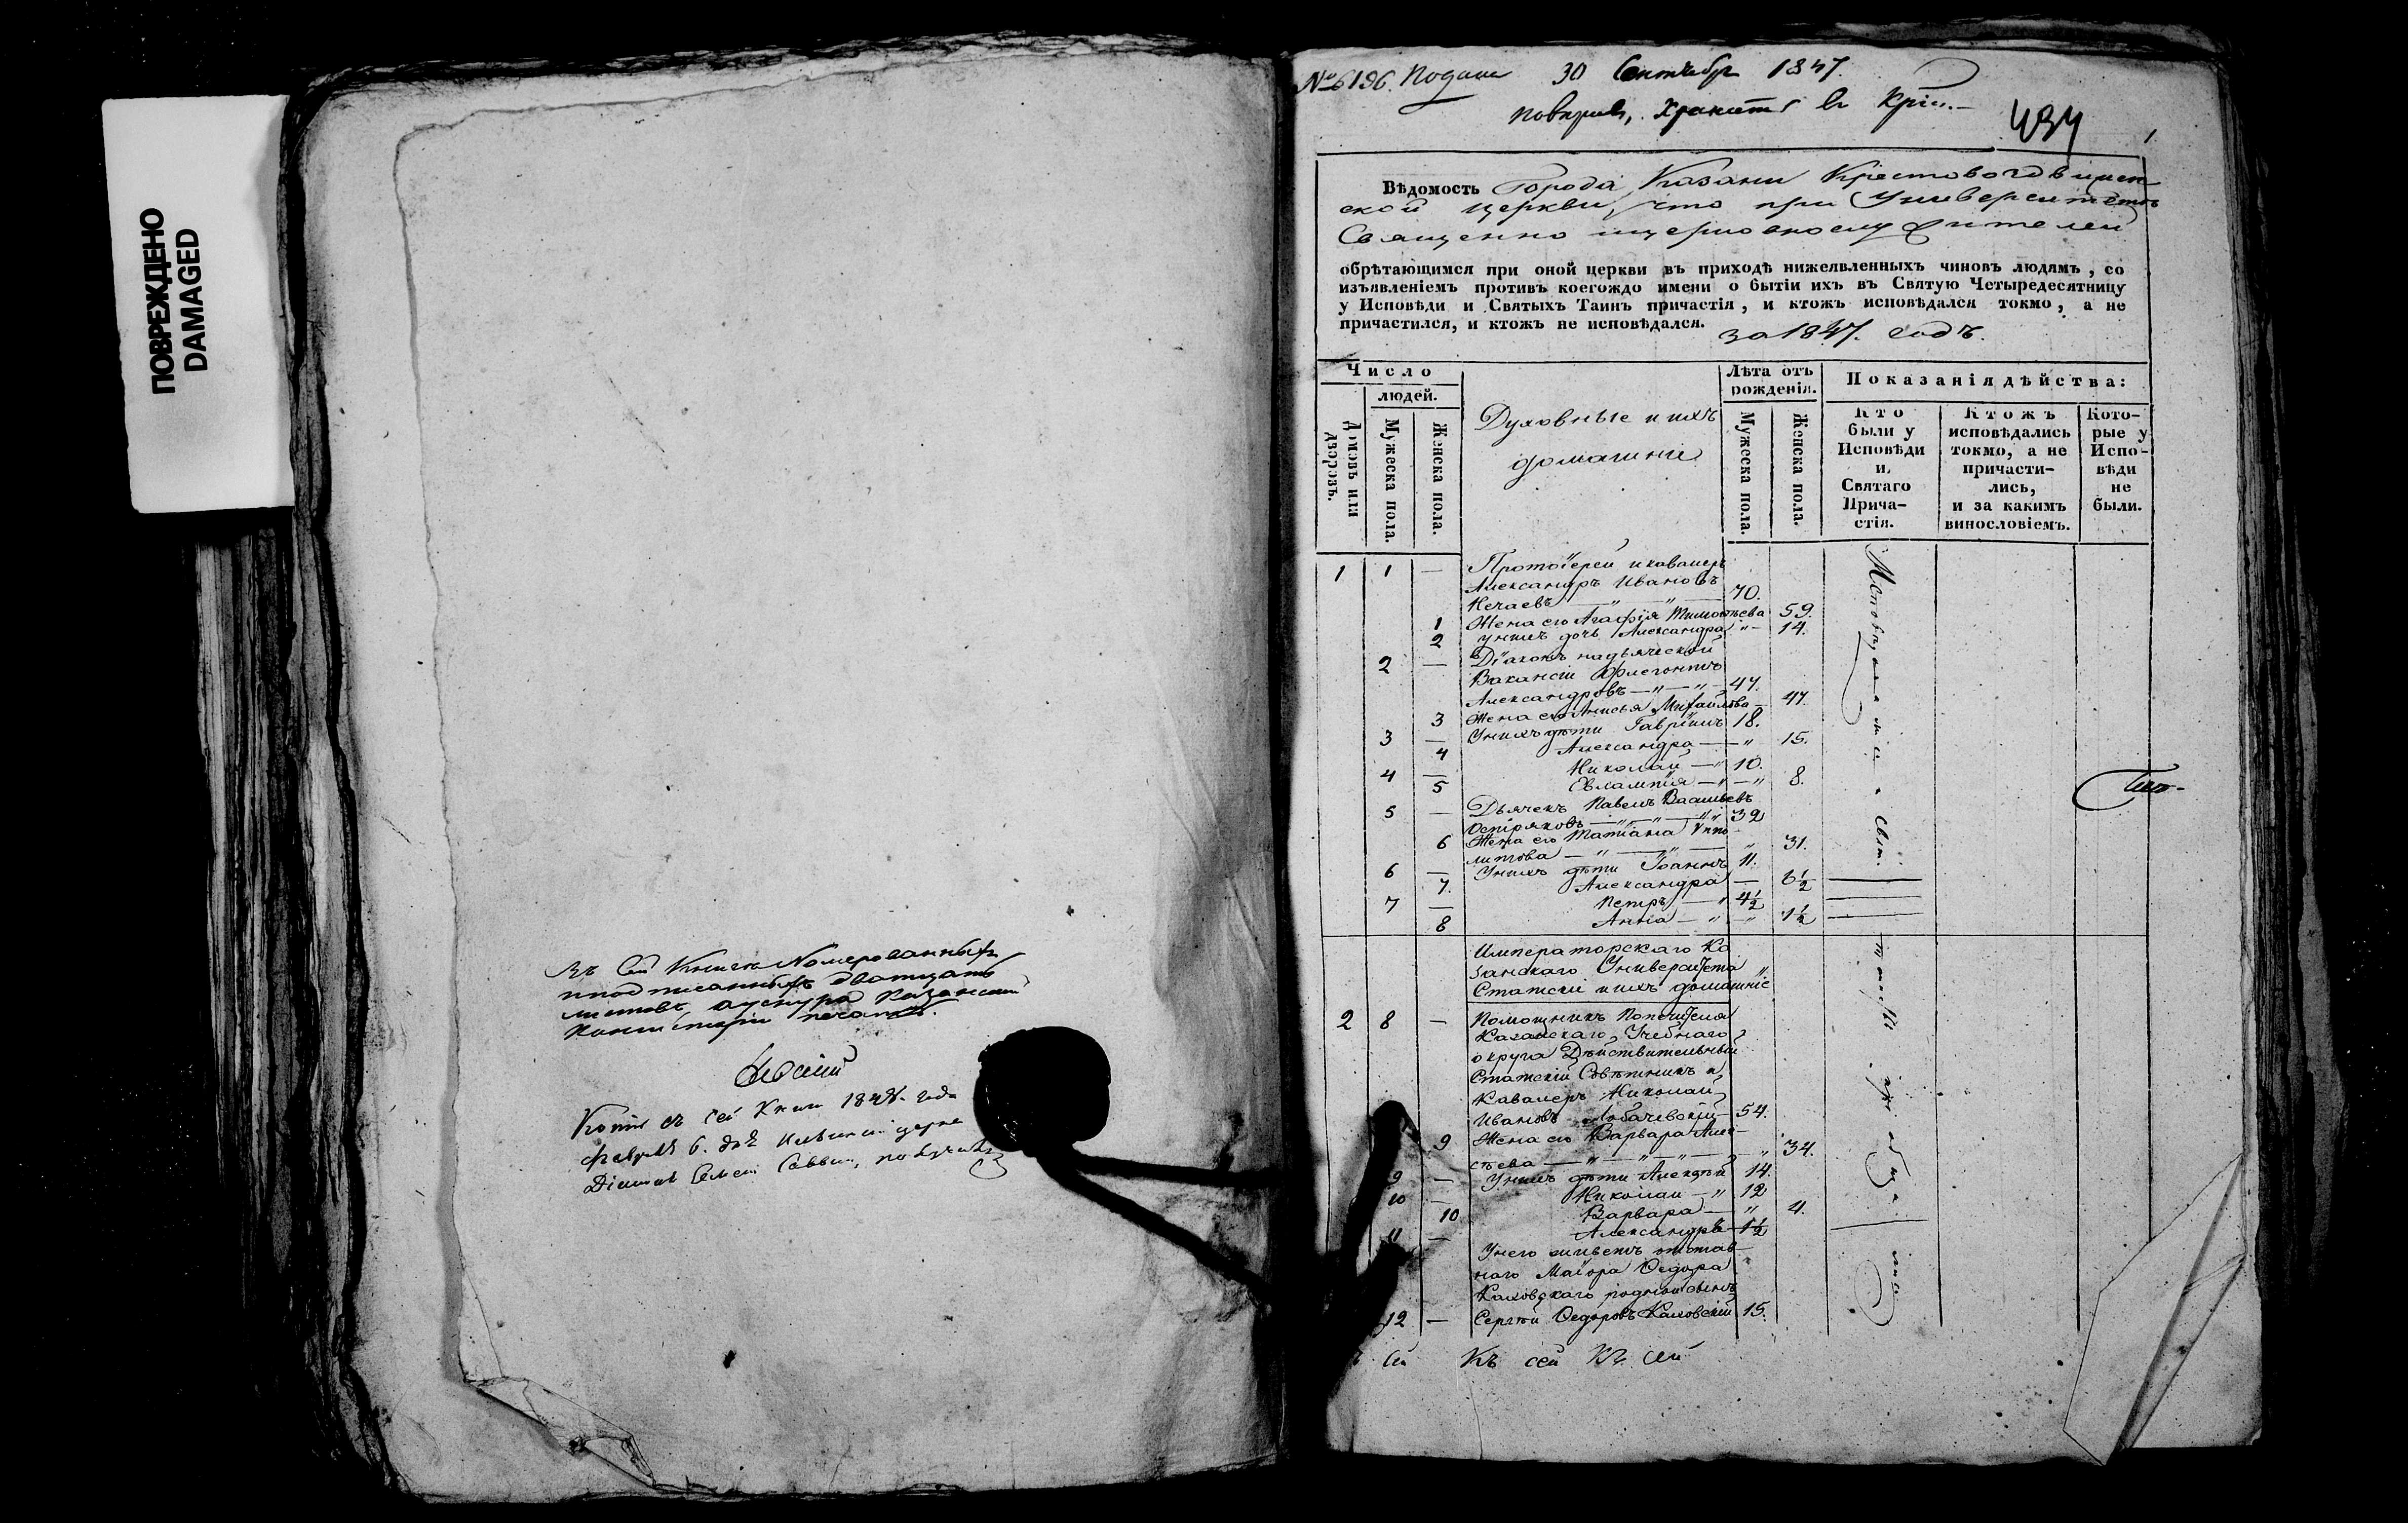 ПОВРЕЖДЕНО
DAMAGED
Въ сей Книгѣ Номерованныхъ
и подписанныхъ дватцать
листовъ, а у снура Казанской
Консисторіи печать.
Копію съ сей Книги
февраля 6. дня церкви
Діаконъ получилъ
№ 6196. Подана 30 Сентября 1847.
повѣривъ, хранить въ
434
1
Вѣдомость Города Казани Крестовоздвижен-
ской церкви, что при Университетѣ
Священно церковнослужителей
обрѣтающимся при оной церкви въ приходѣ нижеявленныхъ чиновъ людямъ, со
изъявленіемъ противъ коегождо имени о бытіи ихъ въ Святую Четыредесятницу
у Исповѣди и Святыхъ Таинъ причастія, и ктожъ исповѣдался токмо, а не
причастился, и ктожъ не исповѣдался. за 1847. годъ.
Число
людей.
Домовъ или дворовъ.
Мужеска пола.
Женска пола.
Духовные и ихъ
домашніе
Лѣта отъ
рожденія.
Мужеска пола.
Женска пола.
Показанія дѣйства:
Кто
были у
Исповѣди
и
Святаго
Прича-
стія.
Ктожъ
исповѣдались
токмо, а не
причасти-
лись,
и за какимъ
винословіемъ.
Кото-
рые у
Испо-
вѣди
не
были.
1 1 — Протоіерей и кавалеръ
Александръ Ивановъ
Нечаевъ — " — " — 70.
1 Жена его Агафія Тимофѣева 59.
2 У нихъ дочь Александра " — 14.
2 — Діаконъ на дьяческой
Вакансіи Флегонтъ
Александровъ — " — " — 47.
3 Жена его Анисья Михайлова — 47.
3 — У нихъ дѣти Гавріилъ 18.
4 Александра — " 15.
4 — Николай — " 10.
5 Евлампія — " — " 8.
5 — Дьячекъ Павелъ Васильевъ
Остряковъ — " — " — " 39
6 Жена его Татіана Иппо-
литова — " — " — " 31.
6 — У нихъ дѣти Іоаннъ 11.
7. Александра — 6½
7 — Петръ — " 4½
8 Анна — " — " 1½
Исповѣдались и Свят.
Таинъ пріобщались
Императорскаго Ка
занскаго Университета
Статскіе и ихъ домашніе
2 8 — Помощникъ Попечителя
Казанскаго Учебнаго
округа Дѣйствительный
Статскій Совѣтникъ и
Кавалеръ Николай
Ивановъ Лобачевскій — 54.
9 Жена его Варвара Алек-
сѣева — " — " — " — " 34.
9 — У нихъ дѣти Алексѣй 14.
10 — Николай — " 12
10 Варвара — " 4.
11 — Александръ — 1½
У него живетъ отстав-
наго Маіора Ѳедора
Каховскаго родной сынъ
12 — Сергѣй Ѳедоровъ Каховскій 15.
Къ сей Къ сей